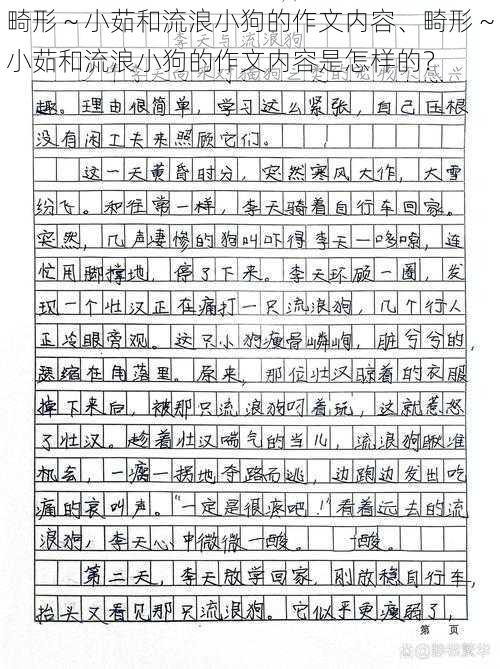 畸形～小茹和流浪小狗的作文内容、畸形～
小茹和流浪小狗的作文内容是怎样的？
李天与流浪狗
趣。理由很简单，学习这么紧张，自己压根
没有闲工夫来照顾它们。
这一天黄昏时分，突然寒风大作，大雪
纷飞。和往常一样，李天骑着自行车回家。
突然，几声凄惨的狗叫吓得李天一哆嗦，连
忙用脚撑地，停了下来。李天环顾一圈，发
现一个壮汉正在痛打一只流浪狗，几个行人
正冷眼旁观。这只小狗瘦骨嶙峋，脏兮兮的，
瑟缩在角落里。原来，那位壮汉晾着的衣服
掉下来后，被那只流浪狗叼着玩，这就惹怒
了壮汉。趁着壮汉喘气的当儿，流浪狗瞅准
机会，一瘸一拐地夺路而逃，边跑边发出吃
痛的哀叫声。“一定是很疼吧！”看着远去的流
浪狗，李天心中微微一酸。
第二天，李天放学回家，刚放稳自行车，
抬头又看见那只流浪狗。它似乎更瘦弱了，
第 页